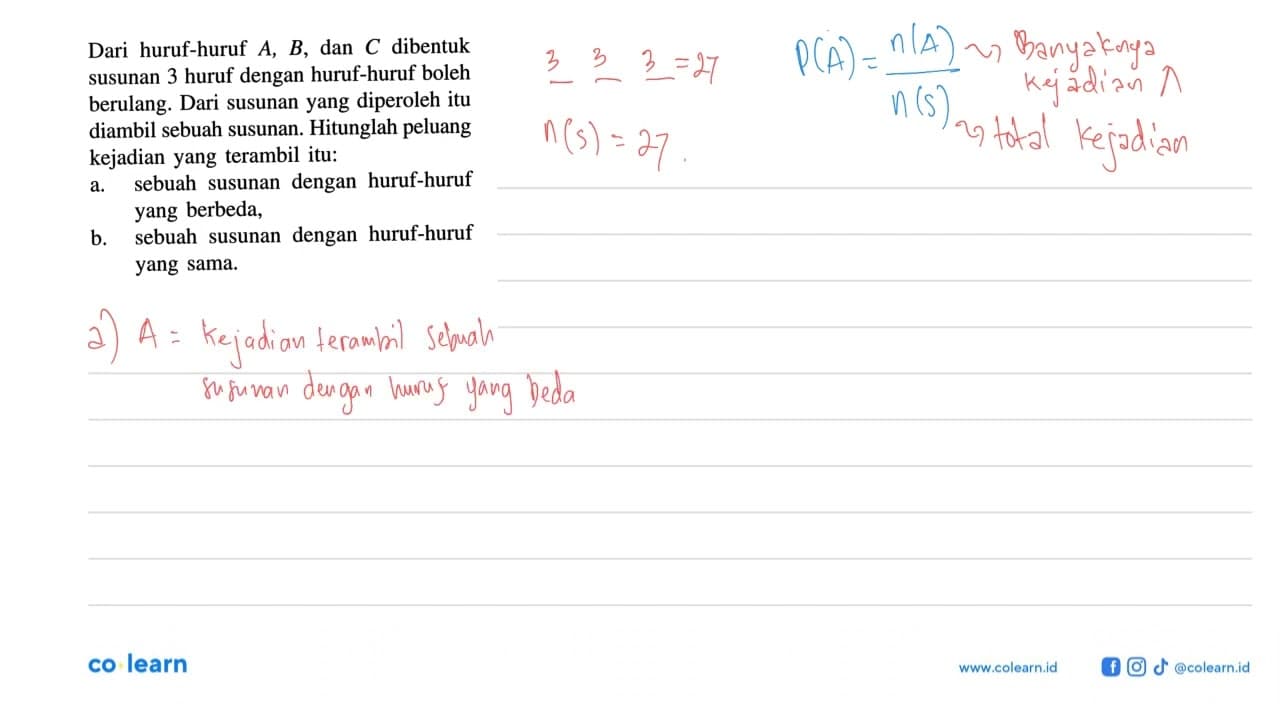 Dari huruf-huruf A, B, dan C dibentuk
susunan 3 huruf dengan huruf-huruf boleh
berulang. Dari susunan yang diperoleh itu
diambil sebuah susunan. Hitunglah peluang
kejadian yang terambil itu:
a. sebuah susunan dengan huruf-huruf
yang berbeda,
b. sebuah susunan dengan huruf-huruf
yang sama.
3 3 3 = 27
n(s) = 27.
P(A) = n(A)/n(S)
Banyaknya
kejadian A
total kejadian
a) A = kejadian terambil sebuah
susunan dengan huruf yang beda
co learn
www.colearn.id
@colearn.id